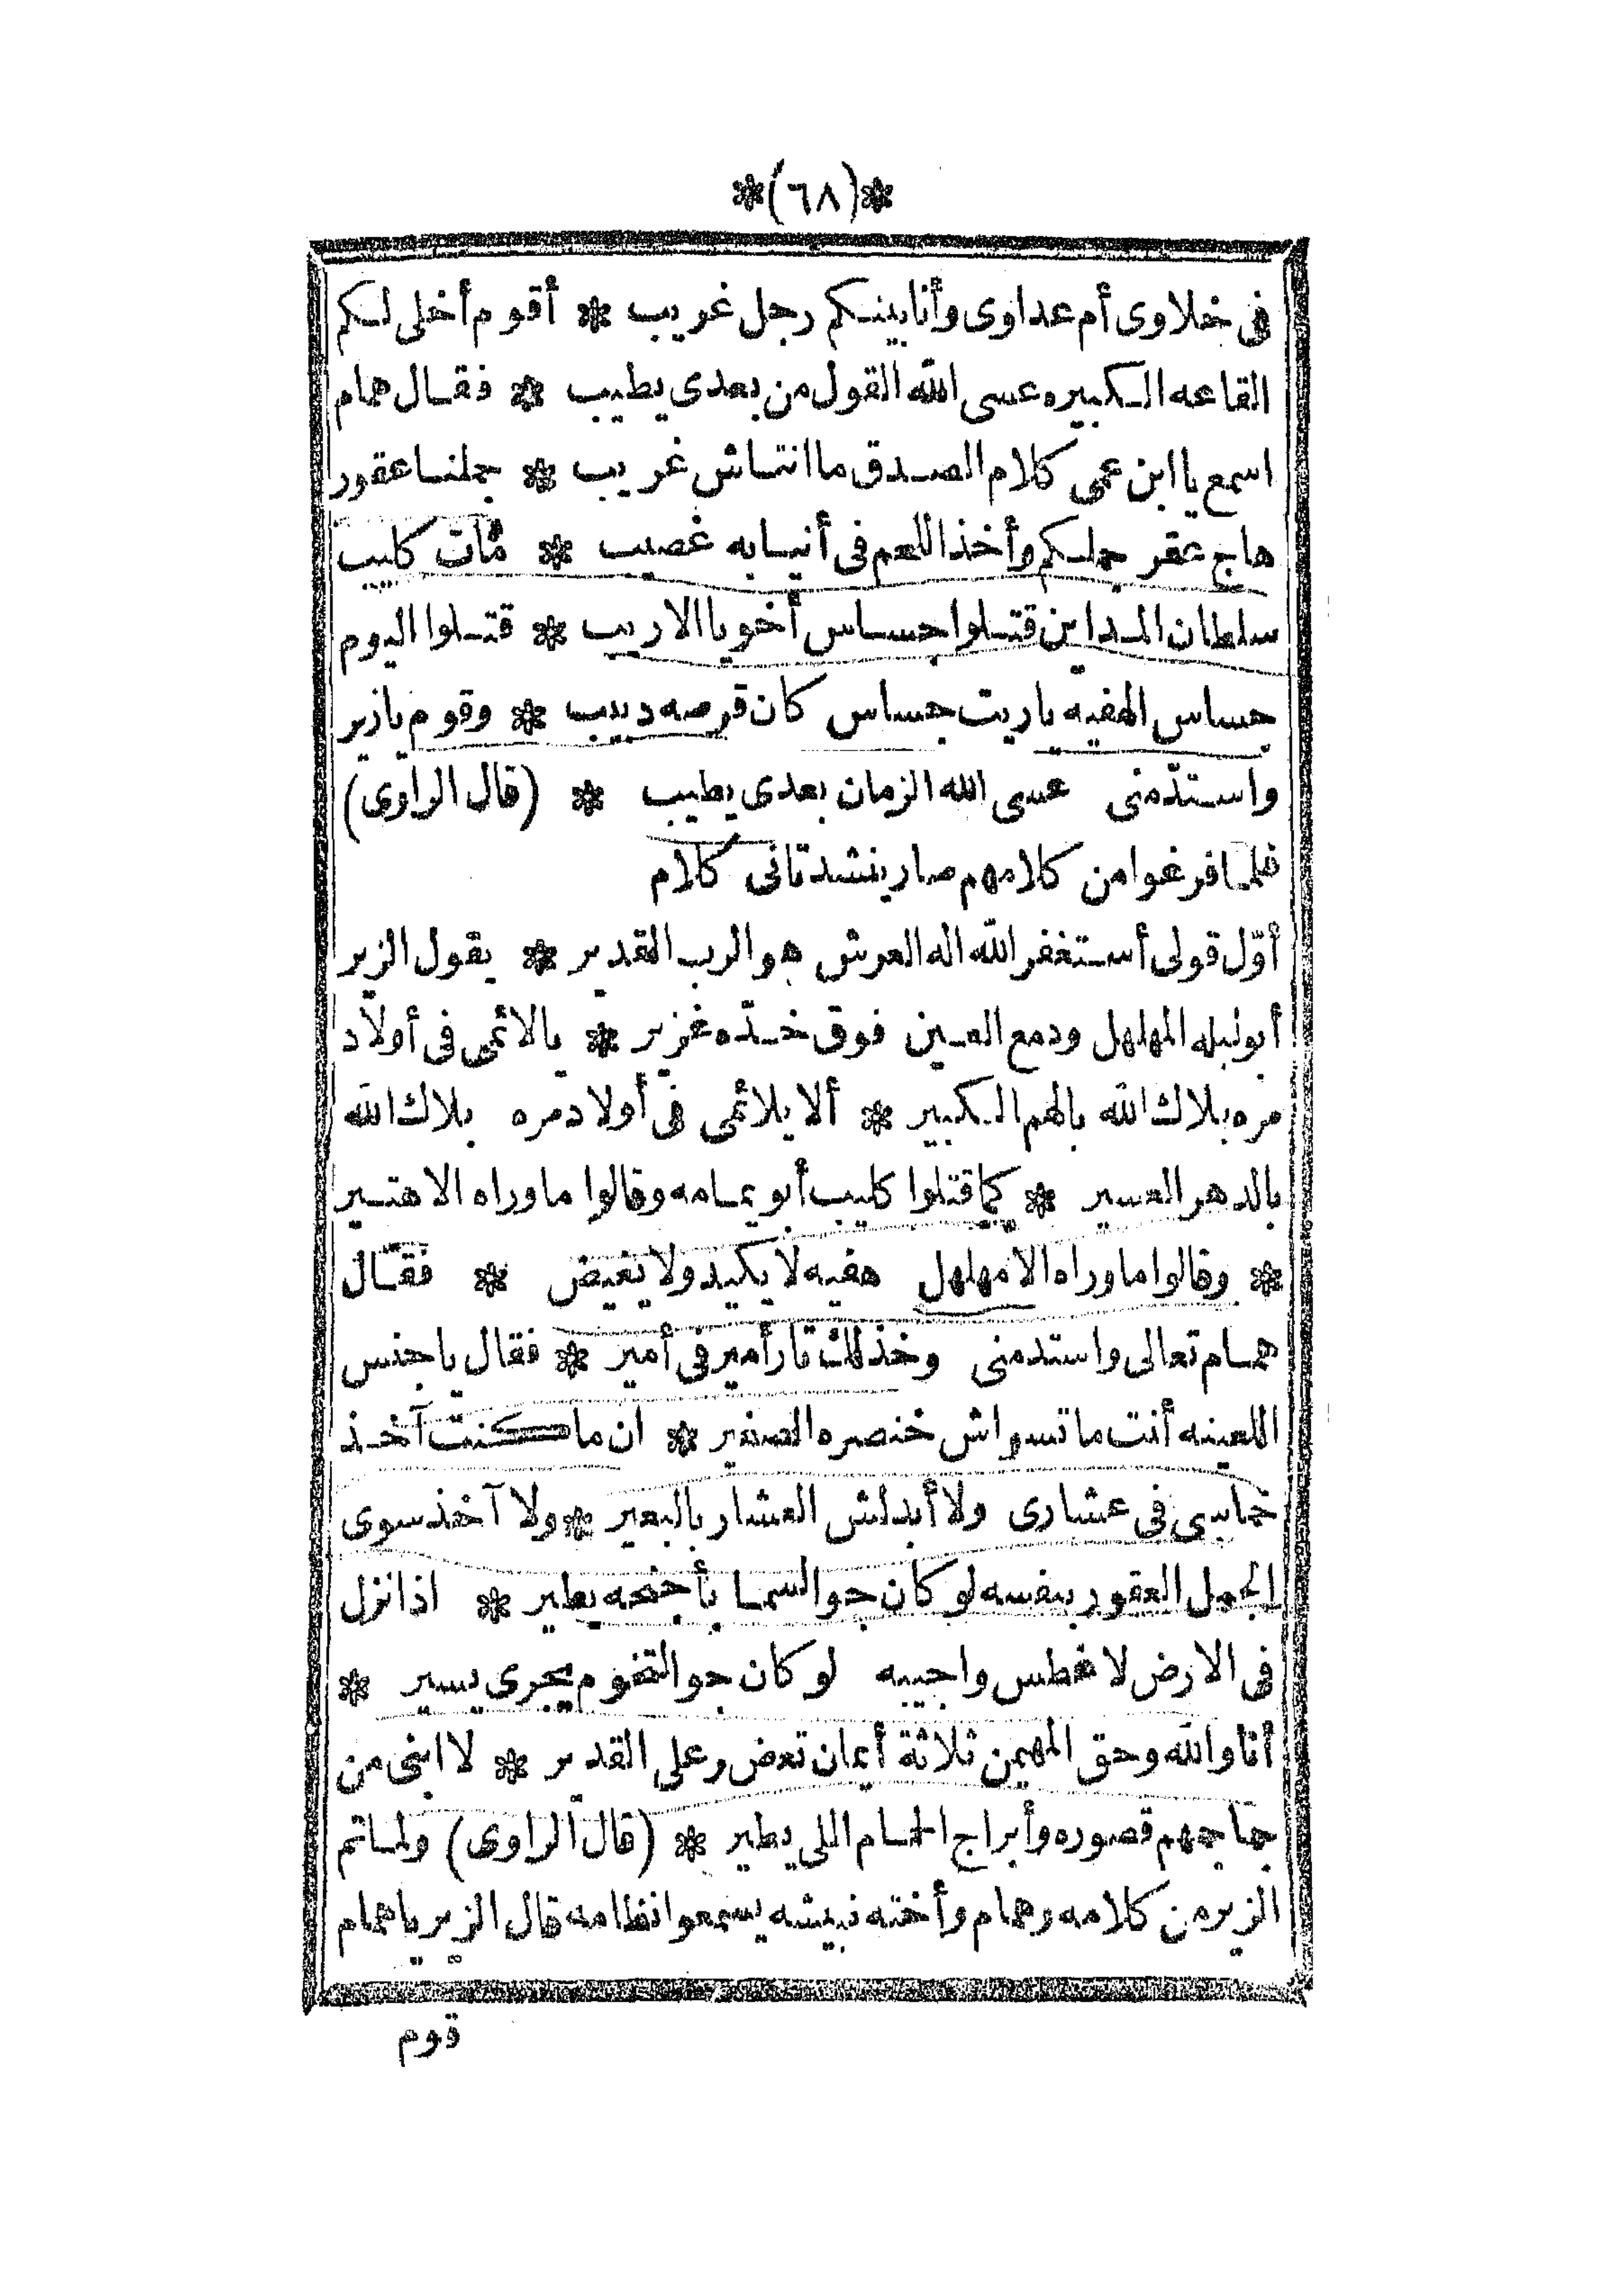 *(٦٨)*
فى خلاوى أم عداوى وأنا بينكم رجل غريب * أقوم أخلى لكم
القاعه الكبيره عسى الله القول من بعدى يطيب * فقال همام
اسمع يا ابن عمى كلام الصدق ما انتاش غريب * جملنا عقور
هاج عقر جملكم وأخذ اللحم فى أنيابه غصيب * مات كليب
سلطان المداين قتلوا جساس أخويا الاريب * قتلوا اليوم
جساس الهفيه ياريت جساس كان قرصه دبيب * وقوم يازير
واستدّمنى عسى الله الزمان بعدى يطيب * (قال الراوى)
فلما فرغوا من كلامهم صار ينشد تانى كلام
أوّل قولى أستغفر الله اله العرش هو الرب القدير * يقول الزير
أبو ليله المهلهل ودمع العين فوق خدّه غزير * يالائمى فى أولاد
مره بلاك الله بالهم الكبير * ألا يلائمى فى أولاد مره بلاك الله
بالدهر العسير * كما قتلوا كليب أبو يمامه وقالوا ما وراه الا هتير
* وقالوا ما وراه الا مهلهل هفيه لا يكيد ولا يغيض * فقال
همام تعالى واستدمنى وخذ لك تار أمير فى أمير * فقال يا جنس
اللعينه أنت ما تسواش خنصره الصغير * ان ما كنت آخذ
خماسى فى عشارى ولا أبدلش العشار بالبعير * ولا آخذ سوى
الجمل العقور بنفسه لو كان جو السما بأجنحه يطير * اذا نزل
فى الارض لا غطس واجيبه لو كان جو التخوم يجرى يسير *
أنا والله وحق المهيمن ثلاثة أيمان تعض رعلى القدير * لا ابنى من
جماجمهم قصوره وأبراج الحمام اللى يطير * (قال الراوى) ولما تم
الزير من كلامه وهمام وأخته نبيشه يسمعوا نظامه قال الزير يا همام
قوم